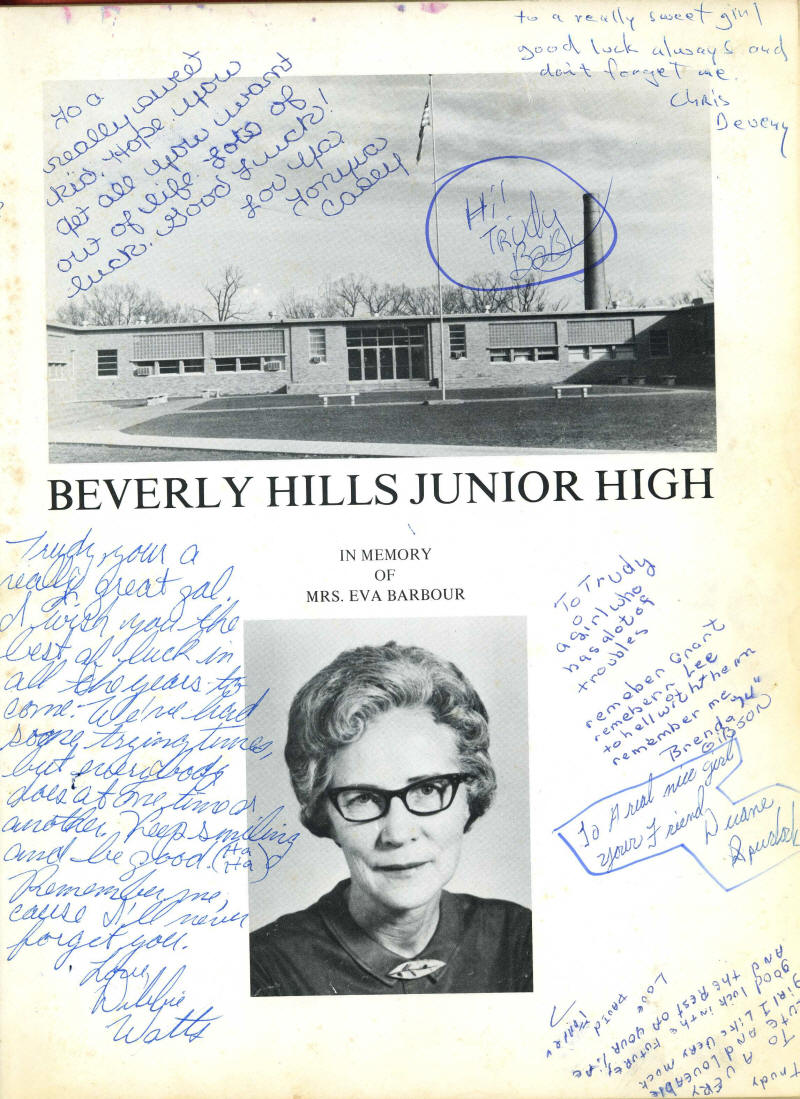 to a really sweet girl
good luck always and
don't forget me.
Chris
Deveny
to a
really sweet
kid. Hope you
get all you want
out of life. Lots of
luck. Good Luck!
Lov Ya
Tonya
Casey
Hi!
Trudy
Baby
BEVERLY HILLS JUNIOR HIGH
IN MEMORY
OF
MRS. EVA BARBOUR
Trudy, your a
really great gal.
I wish you the
best of luck in
all the years to
come. We've had
some trying times,
but everybody
does at one time or
another. Keep smiling
and be good. (Ha Ha)
Remember me,
cause I'll never
forget you.
Love,
Dibbie
Watts
To Trudy
a girl who
has alot of
troubles
remeber Grant
remeber Lee
to hell with them
remember me "74"
Brenda
Gibson
To A real nice girl
your Friend
Duane
Trudy
To A VERY
CUTE AND LOVEABLE
girl I Like VERY Much
good luck in the FUTURE
AND THE REST OF YOUR LIFE
LOVE DAVID